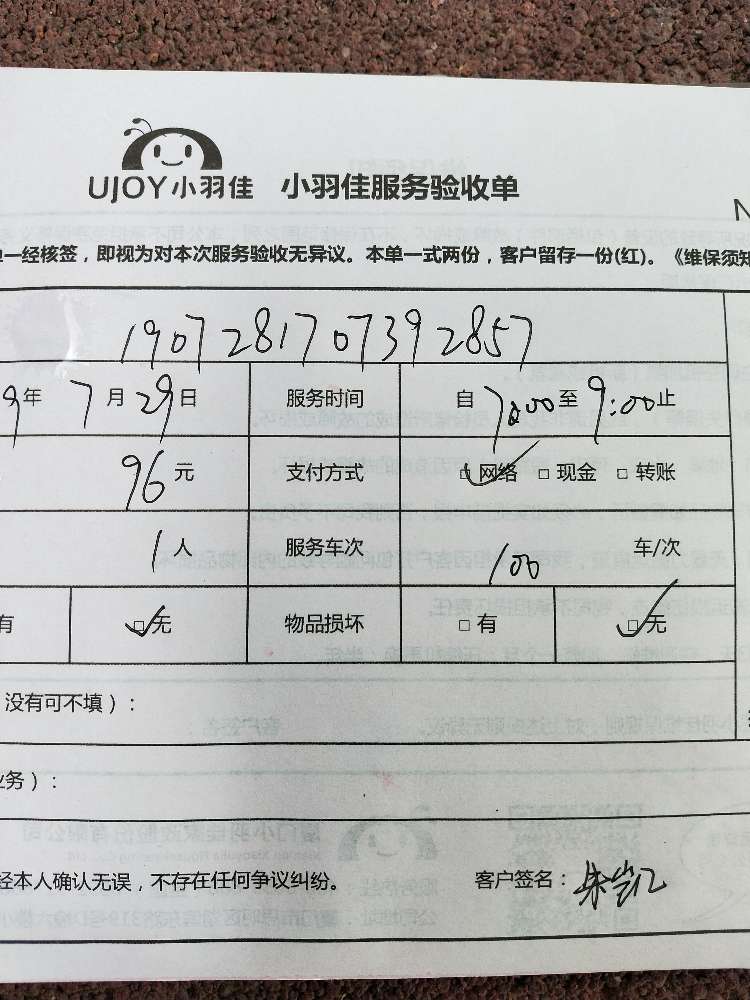 UJOY小羽佳 小羽佳服务验收单
一经核签，即视为对本次服务验收无异议。本单一式两份，客户留存一份(红)。《维保须知
1907281707392857
9年 7月29日 服务时间 自7:00至9:00止
96元 支付方式 □网络 □现金 □转账
1人 服务车次 100 车/次
有 □无 物品损坏 □有 □无
没有可不填）：
业务）：
经本人确认无误，不存在任何争议纠纷。 客户签名：朱岂凡